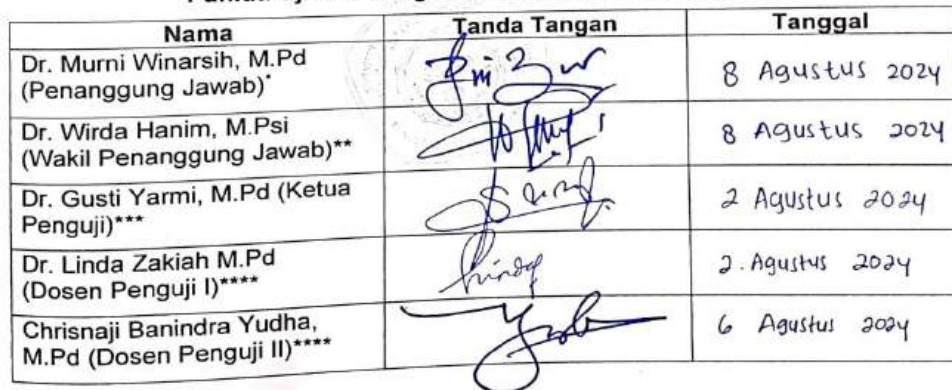 Nama Tanda Tangan Tanggal
Dr. Murni Winarsih, M.Pd
(Penanggung Jawab)* 8 Agustus 2024
Dr. Wirda Hanim, M.Psi
(Wakil Penanggung Jawab)** 8 Agustus 2024
Dr. Gusti Yarmi, M.Pd (Ketua
Penguji)*** 2 Agustus 2024
Dr. Linda Zakiah M.Pd
(Dosen Penguji I)**** 2. Agustus 2024
Chrisnaji Banindra Yudha,
M.Pd (Dosen Penguji II)**** 6 Agustus 2024